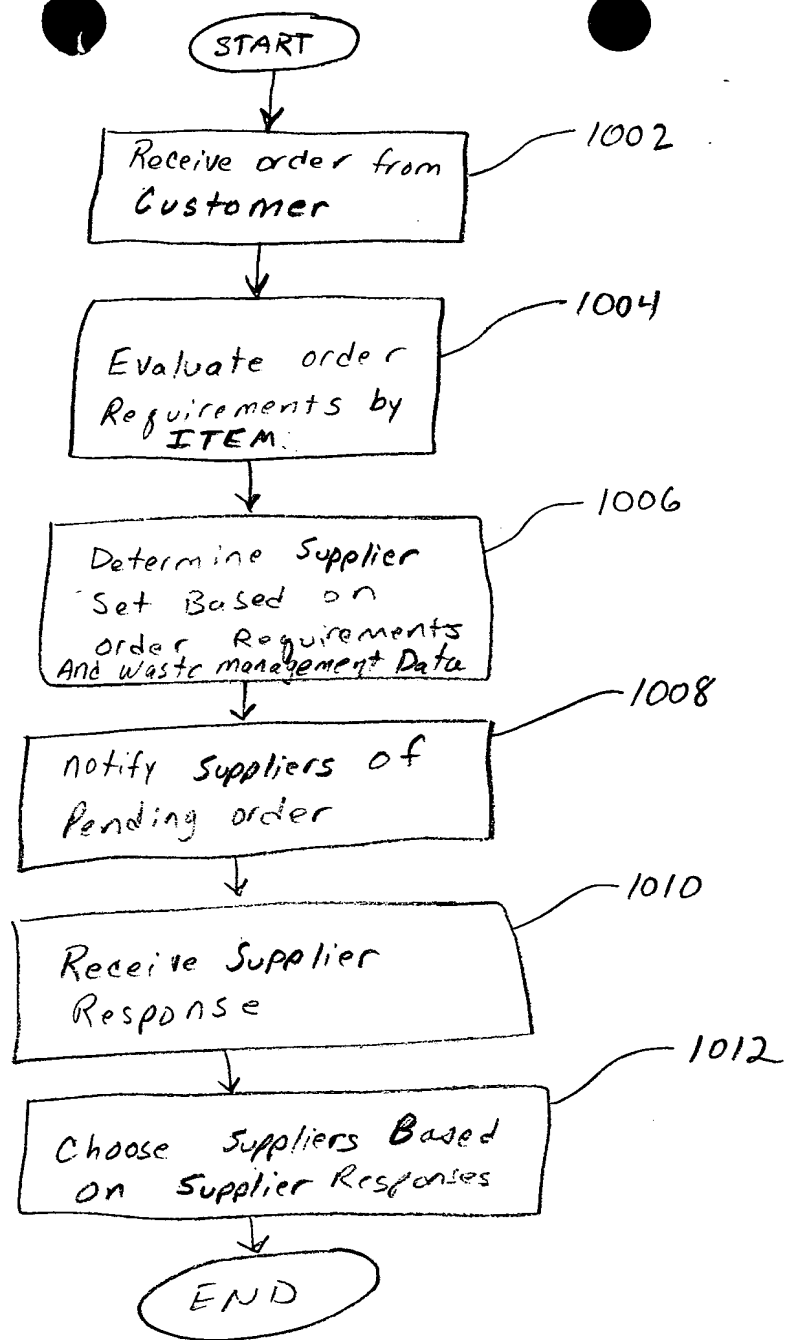 START
Receive order from
Customer
1002
Evaluate order
Requirements by
ITEM.
1004
Determine Supplier
Set Based on
order Requirements
And waste management Data
1006
notify Suppliers of
Pending order
1008
Receive Supplier
Response
1010
Choose Suppliers Based
on Supplier Responses
1012
END